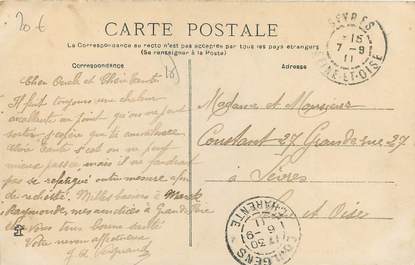 20 €
CARTE POSTALE
La Correspondance au recto n'est pas acceptée par tous les pays étrangers
(Se renseigner à la Poste)
Correspondance
Adresse
SÈVRES
15
7 - 9
11
SEINE-ET-OISE
Cher Oncle et Chère Tante
Il fait toujours une chaleur
accablante au point qu'on ne peut
sortir j'espère que ta convalescence
Chère Tante c'est on ne peut
mieux passée mais il ne faudrait
pas se fatigué outre mesure afin
de rechute. Milles baisers à
Raymonde, nos amitiés à Grand Père
et vous tous bonne santé
Votre neveu affectueux
Madame et Monsieur
Constant 27 Grande rue 27
à Sèvres
Set Oise
COULGENS
17 30
6 - 9
11
CHARENTE